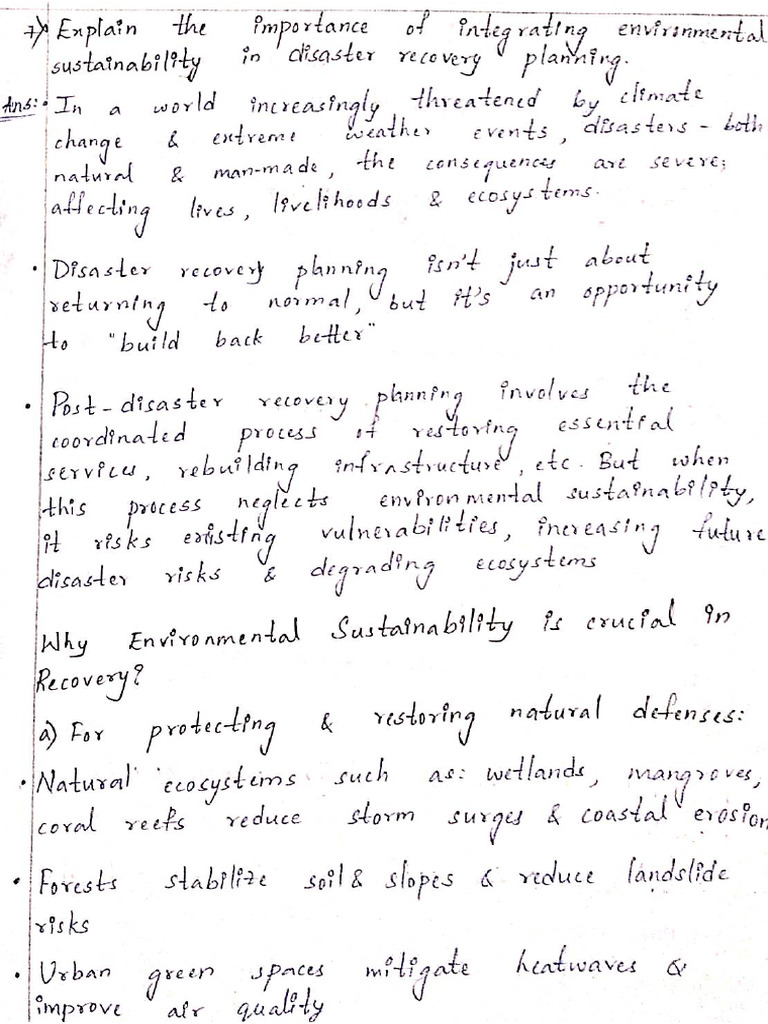 7) Explain the importance of integrating environmental
sustainability in disaster recovery planning.
Ans:• In a world increasingly threatened by climate
change & extreme weather events, disasters - both
natural & man-made, the consequences are severe;
affecting lives, livelihoods & ecosystems.
• Disaster recovery planning isn't just about
returning to normal, but it's an opportunity
to "build back better"
• Post-disaster recovery planning involves the
coordinated process of restoring essential
services, rebuilding infrastructure, etc. But when
this process neglects environmental sustainability,
it risks existing vulnerabilities, increasing future
disaster risks & degrading ecosystems
Why Environmental Sustainability is crucial in
Recovery?
a) For protecting & restoring natural defenses:
• Natural ecosystems such as: wetlands, mangroves,
coral reefs reduce storm surges & coastal erosion
• Forests stabilize soil & slopes & reduce landslide
risks
• Urban green spaces mitigate heatwaves &
improve air quality